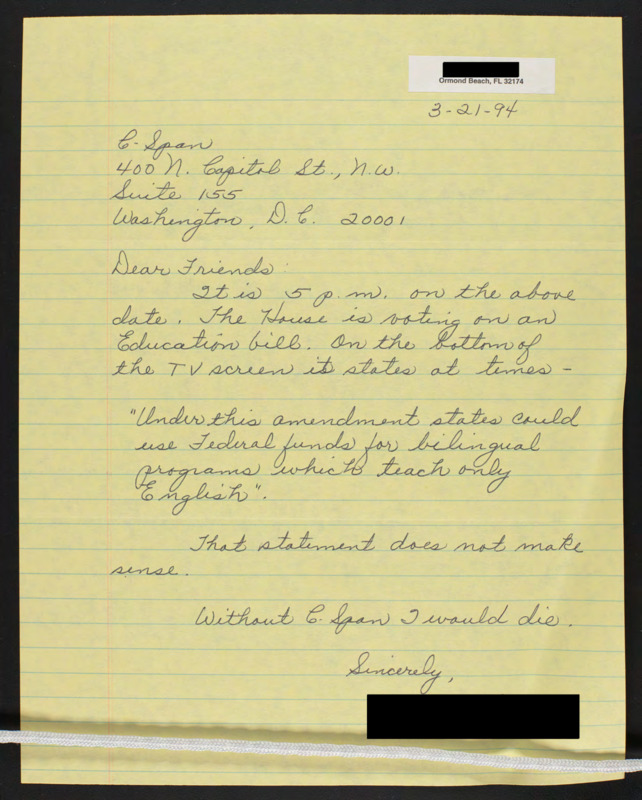 Ormond Beach, FL 32174
3-21-94
C-Span
400 N. Capitol St., N.W.
Suite 155
Washington, D.C. 20001
Dear Friends:
It is 5 p.m. on the above
date. The House is voting on an
Education bill. On the bottom of
the TV screen it states at times -
"Under this amendment states could
use Federal funds for bilingual
programs which teach only
English".
That statement does not make
sense.
Without C-Span I would die.
Sincerely,